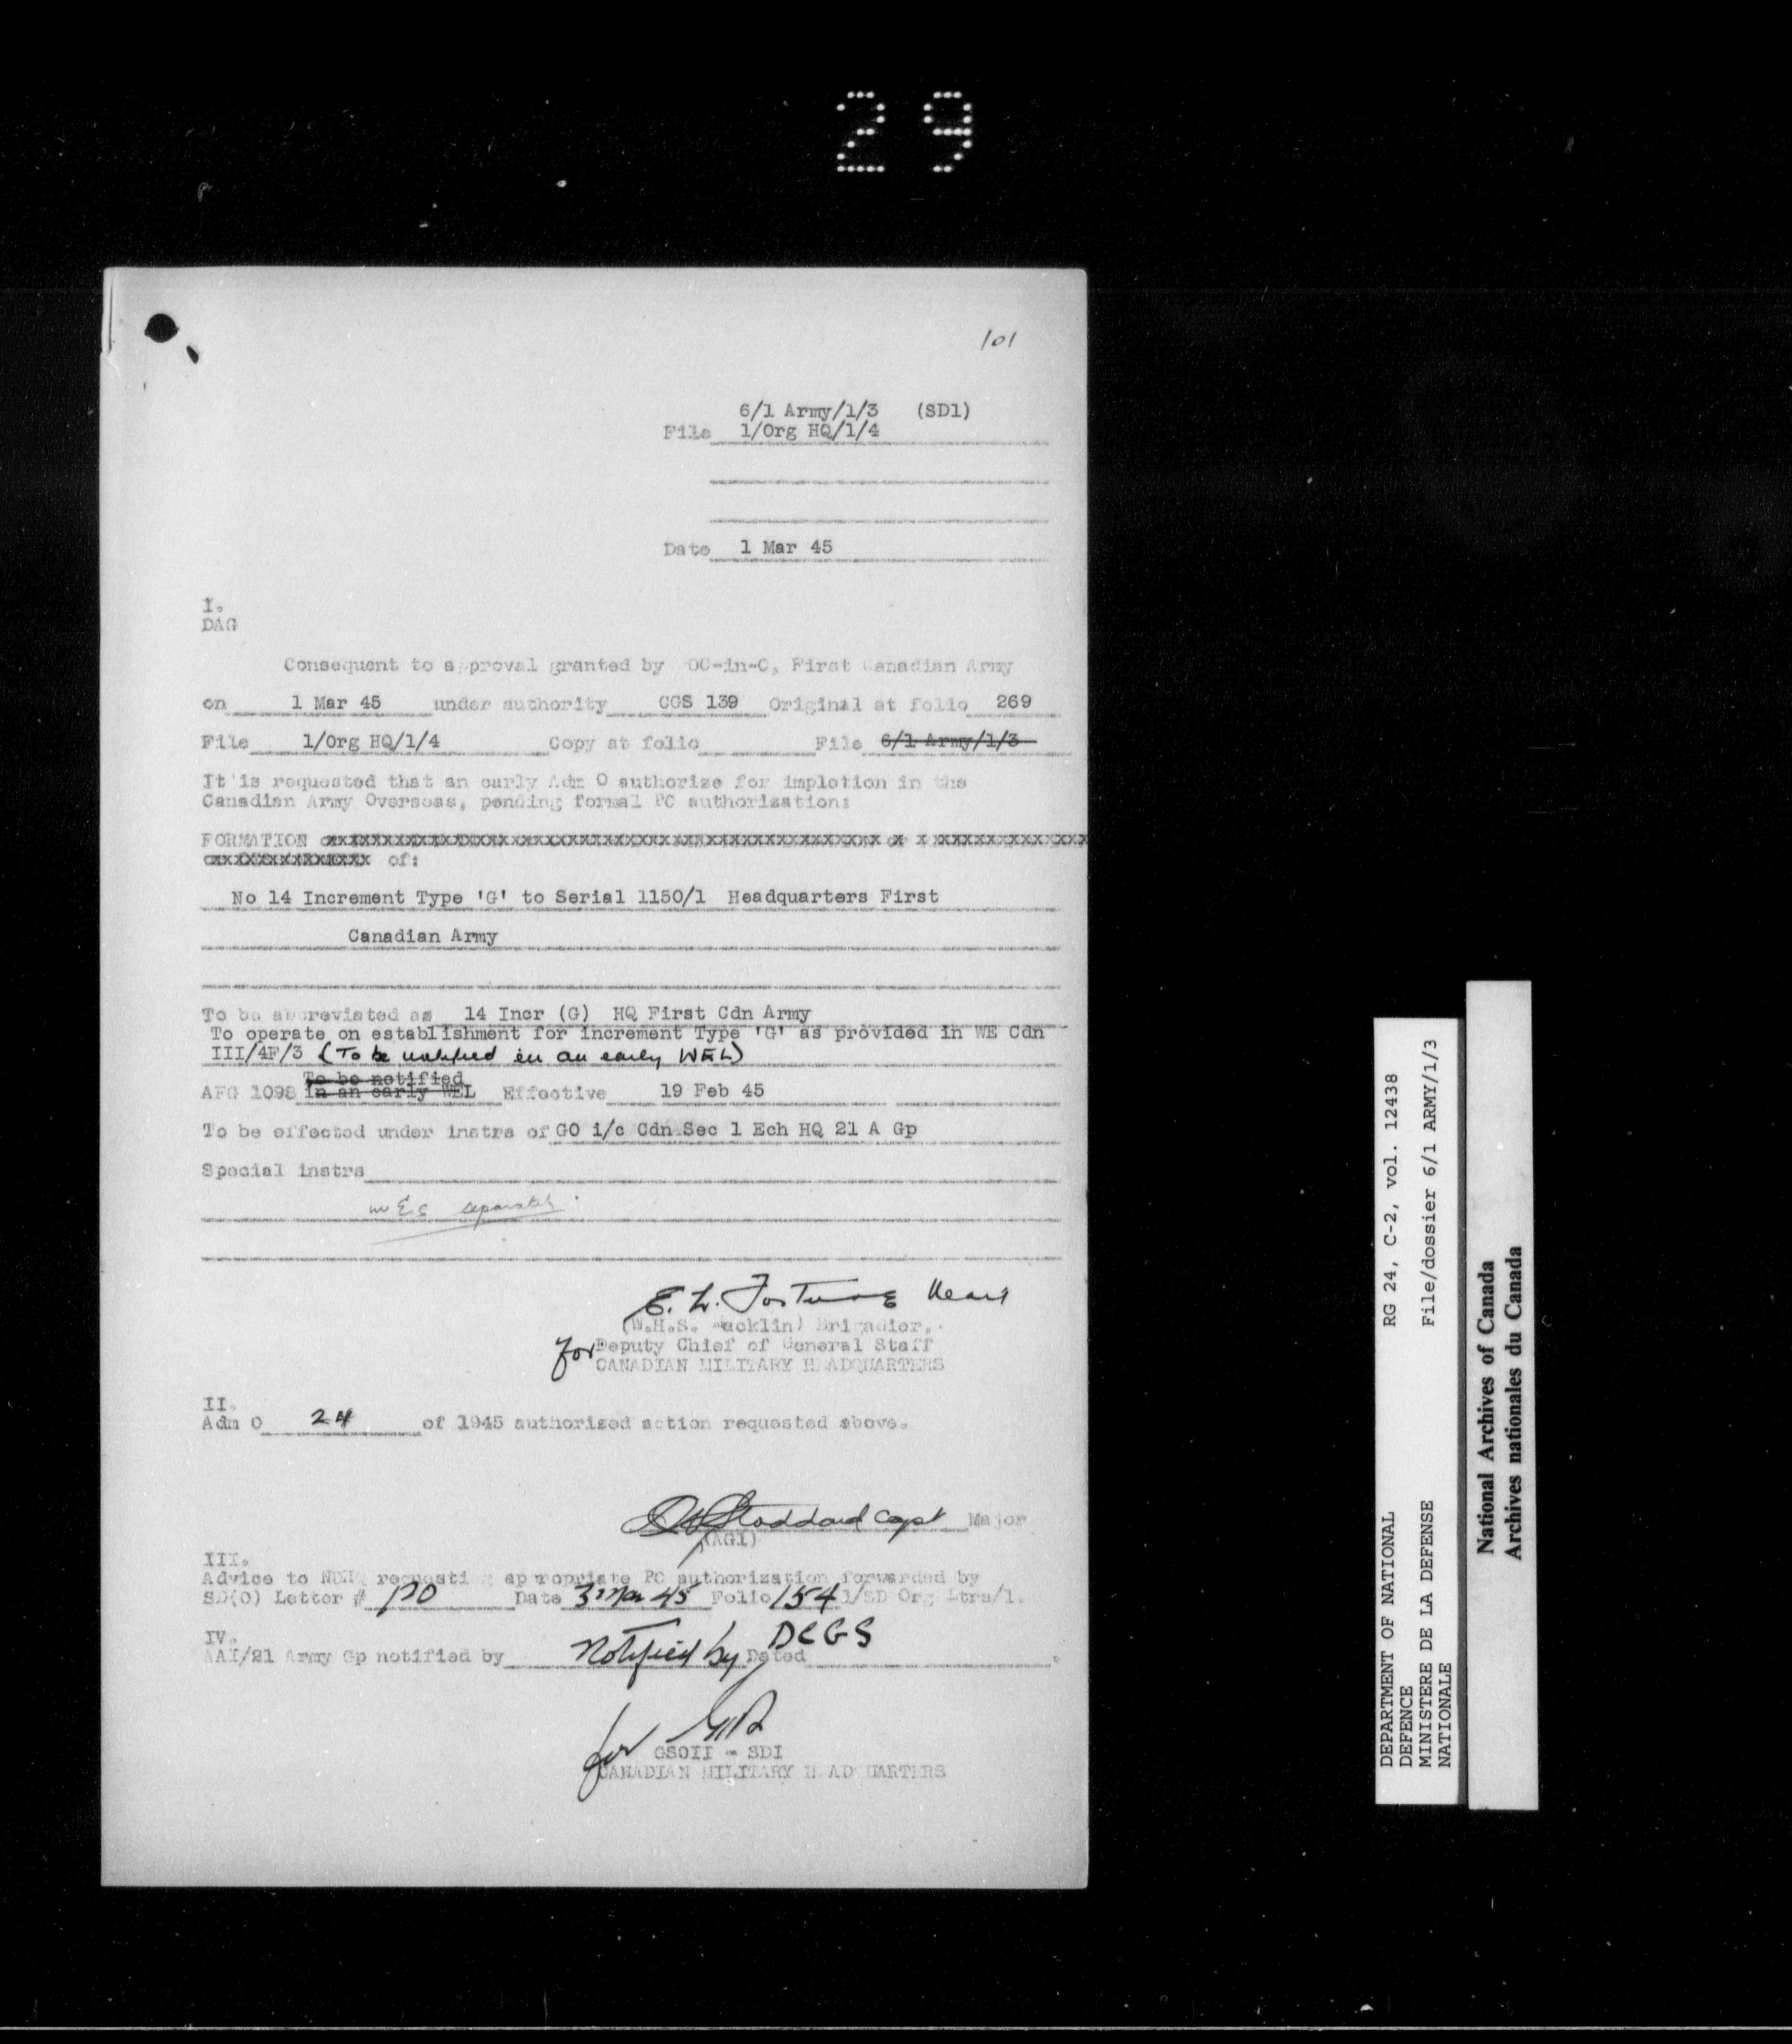 29
101
6/1 Army/1/3 (SD1)
File 1/Org HQ/1/4
Date 1 Mar 45
I.
DAG
Consequent to approval granted by GOC-in-C, First Canadian Army
on 1 Mar 45 under authority CGS 139 Original at folio 269
File 1/Org HQ/1/4 Copy at folio File 6/1 Army/1/3
It is requested that an early Adm O authorize for impletion in the
Canadian Army Overseas, pending formal PC authorization:
FORMATION
of:
No 14 Increment Type 'G' to Serial 1150/1 Headquarters First
Canadian Army
To be abbreviated as 14 Incr (G) HQ First Cdn Army
To operate on establishment for increment Type 'G' as provided in WE Cdn
III/4F/3 (To be notified in an early WEL)
To be notified
AFG 1098 in an early WEL Effective 19 Feb 45
To be effected under instrs of GO i/c Cdn Sec 1 Ech HQ 21 A Gp
Special instrs
(W.H.S. Macklin) Brigadier,
for Deputy Chief of General Staff
CANADIAN MILITARY HEADQUARTERS
II.
Adm O 24 of 1945 authorized action requested above.
Stoddard Capt Major
(AG1)
III.
Advice to NDHQ requesting appropriate PC authorization forwarded by
SD(O) Letter # 170 Date 3 Mar 45 Folio 154 1/SD Org Ltrs/1.
IV.
AAI/21 Army Gp notified by Notified by DCGS Dated
for
GSOII - SDI
CANADIAN MILITARY HEADQUARTERS
DEPARTMENT OF NATIONAL
DEFENCE
MINISTERE DE LA DEFENSE
NATIONALE
RG 24, C-2, vol. 12438
File/dossier 6/1 ARMY/1/3
National Archives of Canada
Archives nationales du Canada